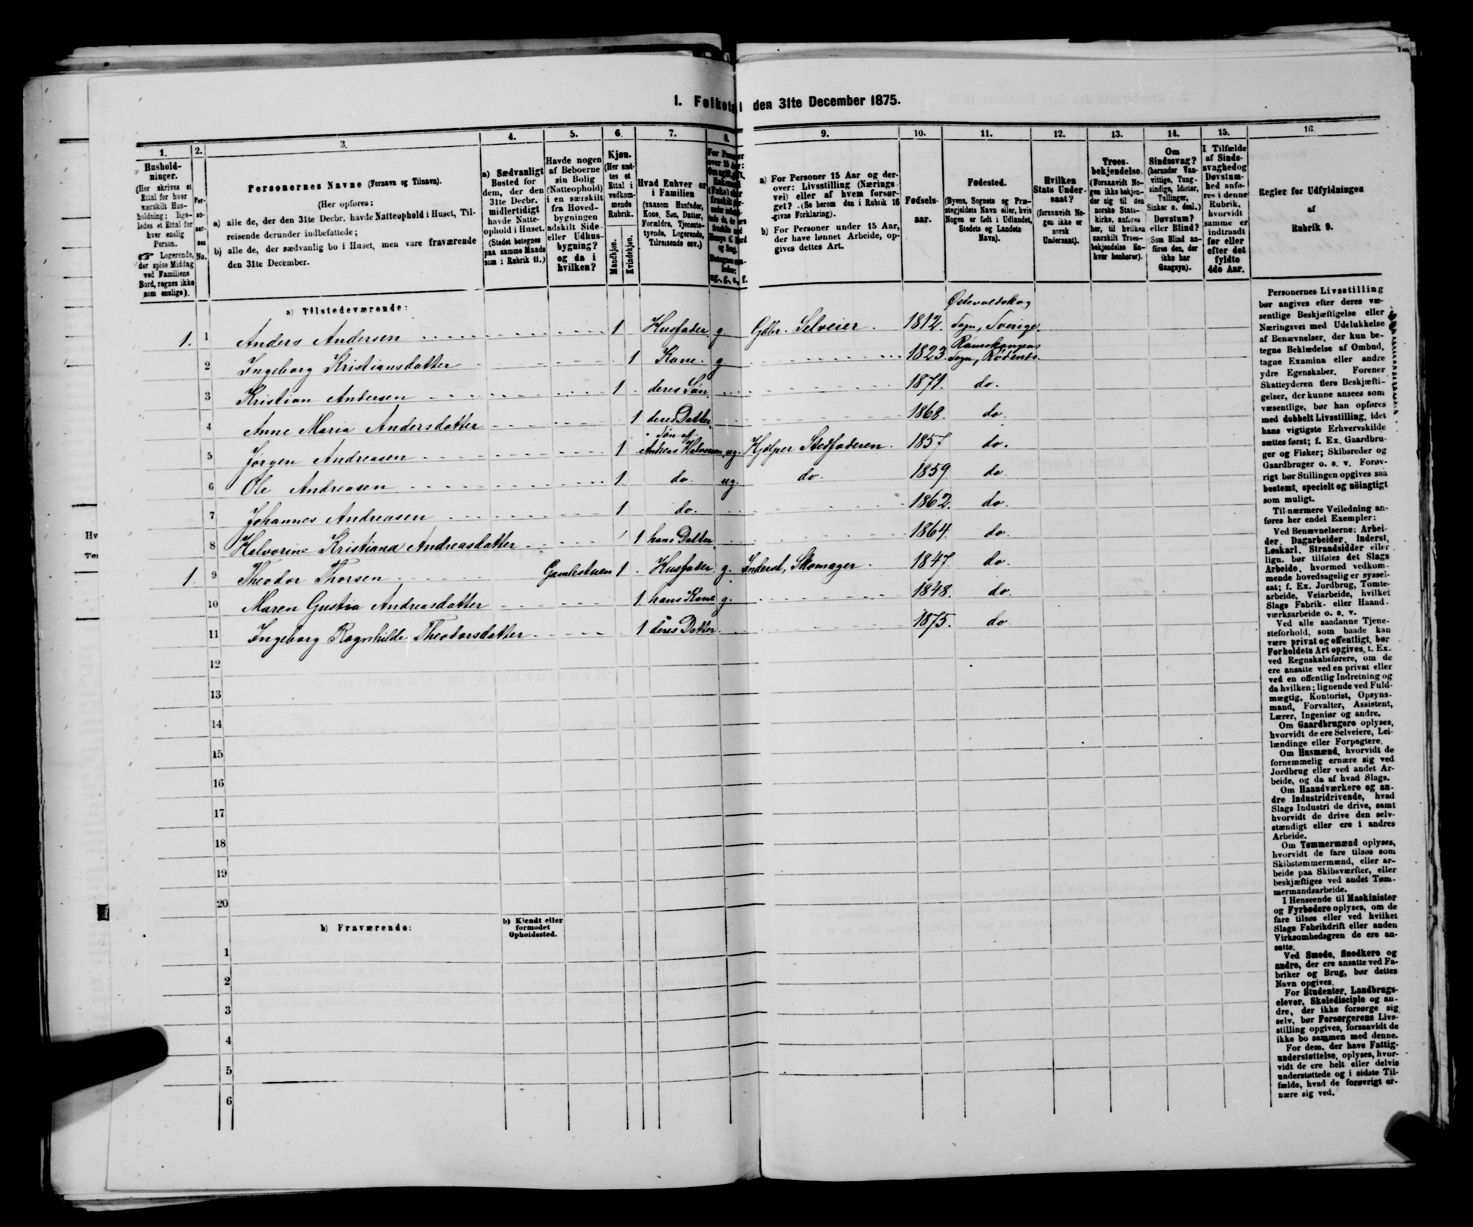 I. Folketal den 31te December 1875.
1.
2.
3.
4.
5.
6.
7.
8.
Hushold-
ninger.
(Her skrives et
Ettal for hver
særskilt Hus-
holdning; lige-
ledes et Ettal for
hver enslig
Person.
☞ Logerende,
der spise Middag
ved Familiens
Bord, regnes ikke
som enslige).
Per-
so-
ner-
nes
No.
Personernes Navne (Fornavn og Tilnavn).
(Her opføres:
a) alle de, der den 31te Decbr. havde Natteophold i Huset, Til-
reisende derunder indbefattede;
b) alle de, der sædvanlig bo i Huset, men vare fraværende
den 31te December.
a) Sædvanligt
Bosted for
dem, der den
31te Decbr.
midlertidigt
havde Natte-
ophold i Huset.
(Stedet betegnes
paa samme Maade
som i Rubrik 11.)
Havde nogen
af Beboerne
sin Bolig
(Natteophold)
i en særskilt
fra Hoved-
bygningen
adskilt Side-
eller Udhus-
bygning?
og da i
hvilken?
Kjøn.
(Her sæt-
tes et
Ettal i
vedkom-
mende
Rubrik.
Mandkjøn.
Kvindekjøn.
Hvad Enhver er
i Familien
(saasom Husfader,
Kone, Søn, Datter,
Forældre, Tjeneste-
tyende, Logerende,
Tilreisende osv.)
9.
10.
11.
12.
13.
14.
15.
16.
a) For Personer 15 Aar og der-
over: Livsstilling (Nærings-
vei) eller af hvem forsør-
get? (Se herom den i Rubrik 16
givne Forklaring).
b) For Personer under 15 Aar,
der have lønnet Arbeide, op-
gives dettes Art.
Fødsels-
aar.
Fødested.
(Byens, Sognets og Præ-
stegjeldets Navn eller, hvis
Nogen er født i Udlandet,
Stedets og Landets
Navn).
Hvilken
Stats Under-
saat?
(forsaavidt No-
gen ikke er
norsk
Undersaat).
Troes-
bekjendelse.
(Forsaavidt No-
gen ikke bekjen-
der sig til den
norske Stats-
kirke, anføres
her, til hvilken
særskilt Troes-
bekjendelse En-
hver henhører).
Om
Sindssvag?
(herunder Van-
vittige, Tung-
sindige, Idioter,
Tullinger,
Sinker o. desl.)
Døvstum?
eller Blind?
(Som Blind an-
føres den, der
ikke har
Gangsyn).
I Tilfælde
af Sinds-
svaghed og
Døvstum-
hed anfø-
res i denne
Rubrik,
hvorvidt
samme er
indtraadt
før eller
efter det
fyldte
4de Aar.
Regler for Udfyldningen
af
Rubrik 9.
a) Tilstedeværende:
1. 1 Anders Andersen 1 Husfader g Gdbr. Selveier. 1812. Østervaldskog Sogn, Sverige.
2 Ingeborg Kristiansdatter 1 Kone. g 1823. Sogn, Rødenæs
3 Kristian Andersen 1 deres Søn 1871. do.
4 Anne Maria Andersdatter 1 deres Datter 1868. do.
5 Jørgen Andreasen 1 Søn af Andreas Halvorsen ug. Hjelper Stedfaderen. 1857. do.
6 Ole Andreasen 1 do. ug. do. 1859 do
7 Johannes Andreasen 1 do. 1862. do.
8 Halvorine Kristiana Andreasdatter 1 hans Datter 1864. do.
1. 9 Theodor Thorsen Gamlestuen 1 Husfader g. Inderst, Skomager. 1847. do
10 Maren Gustia Andreasdatter 1 hans Kone g. 1848. do.
11 Ingeborg Ragnhilde Theodorsdatter 1 deres Datter 1875. do
12
13
14
15
16
17
18
19
20
b) Fraværende:
b) Kjendt eller
formodet
Opholdssted.
1
2
3
4
5
6
Personernes Livsstilling
bør angives efter deres væ-
sentlige Beskjæftigelse eller
Næringsvei med Udelukkelse
af Benævnelser, der kun be-
tegne Beklædelse af Ombud,
tagne Examina eller andre
ydre Egenskaber. Forener
Skatteyderen flere Beskjæfti-
gelser, der kunne ansees som
væsentlige, bør han opføres
med dobbelt Livsstilling, idet
hans vigtigste Erhvervskilde
sættes først; f. Ex. Gaardbru-
ger og Fisker; Skibsreder og
Gaardbruger o. s. v. Forøv-
rigt bør Stillingen opgives saa
bestemt, specielt og nöiagtigt
som muligt.
Til nærmere Veiledning an-
føres her endel Exempler:
Ved Benævnelserne: Arbei-
der, Dagarbeider, Inderst,
Løskarl, Strandsidder eller
lign. bør tilføies det Slags
Arbeide, hvormed vedkom-
mende hovedsagelig er syssel-
sat; f. Ex. Jordbrug, Tomte-
arbeide, Veiarbeide, hvilket
Slags Fabrik- eller Haand-
værksarbeide o. s. v.
Ved alle saadanne Tjene-
steforhold, som baade kan
være privat og offentligt, bør
Forholdets Art opgives, t. Ex.
ved Regnskabsførere, om de
ere ansatte ved en privat eller
ved en offentlig Indretning og
da hvilken; lignende ved Fuld-
mægtig, Kontorist, Opsyns-
mand, Forvalter, Assistent,
Lærer, Ingeniør og andre.
Om Gaardbrugere oplyses,
hvorvidt de ere Selveiere, Lei-
lændinge eller Forpagtere.
Om Husmænd, hvorvidt de
fornemmelig ernære sig ved
Jordbrug eller ved andet Ar-
beide, og da af hvad Slags.
Om Haandværkere og an-
dre Industridrivende, hvad
Slags Industri de drive, samt
hvorvidt de drive den selv-
stændigt eller ere i andres
Arbeide.
Om Tømmermænd oplyses,
hvorvidt de fare tilsøs som
Skibstømmermænd, eller ar-
beide paa Skibsværfter, eller
beskjæftiges ved andet Tøm-
mermandsarbeide.
I Henseende til Maskinister
og Fyrbødere oplyses, om de
fare tilsøs eller ved hvilket
Slags Fabrikdrift eller anden
Virksomhedsgren de ere an-
satte.
Ved Smede, Snedkere og
andre, der ere ansatte ved Fa-
briker og Brug, bør dettes
Navn opgives.
For Studenter, Landbrugs-
elever, Skoledisciple og an-
dre, der ikke forsørge sig
selv, bør Forsørgerens Livs-
stilling opgives, forsaavidt de
ikke bo sammen med denne.
For dem, der have Fattig-
understøttelse, oplyses, hvor-
vidt de ere helt eller delvis
understøttede og i sidste Til-
fælde, hvad de forøvrigt er-
nære sig ved.